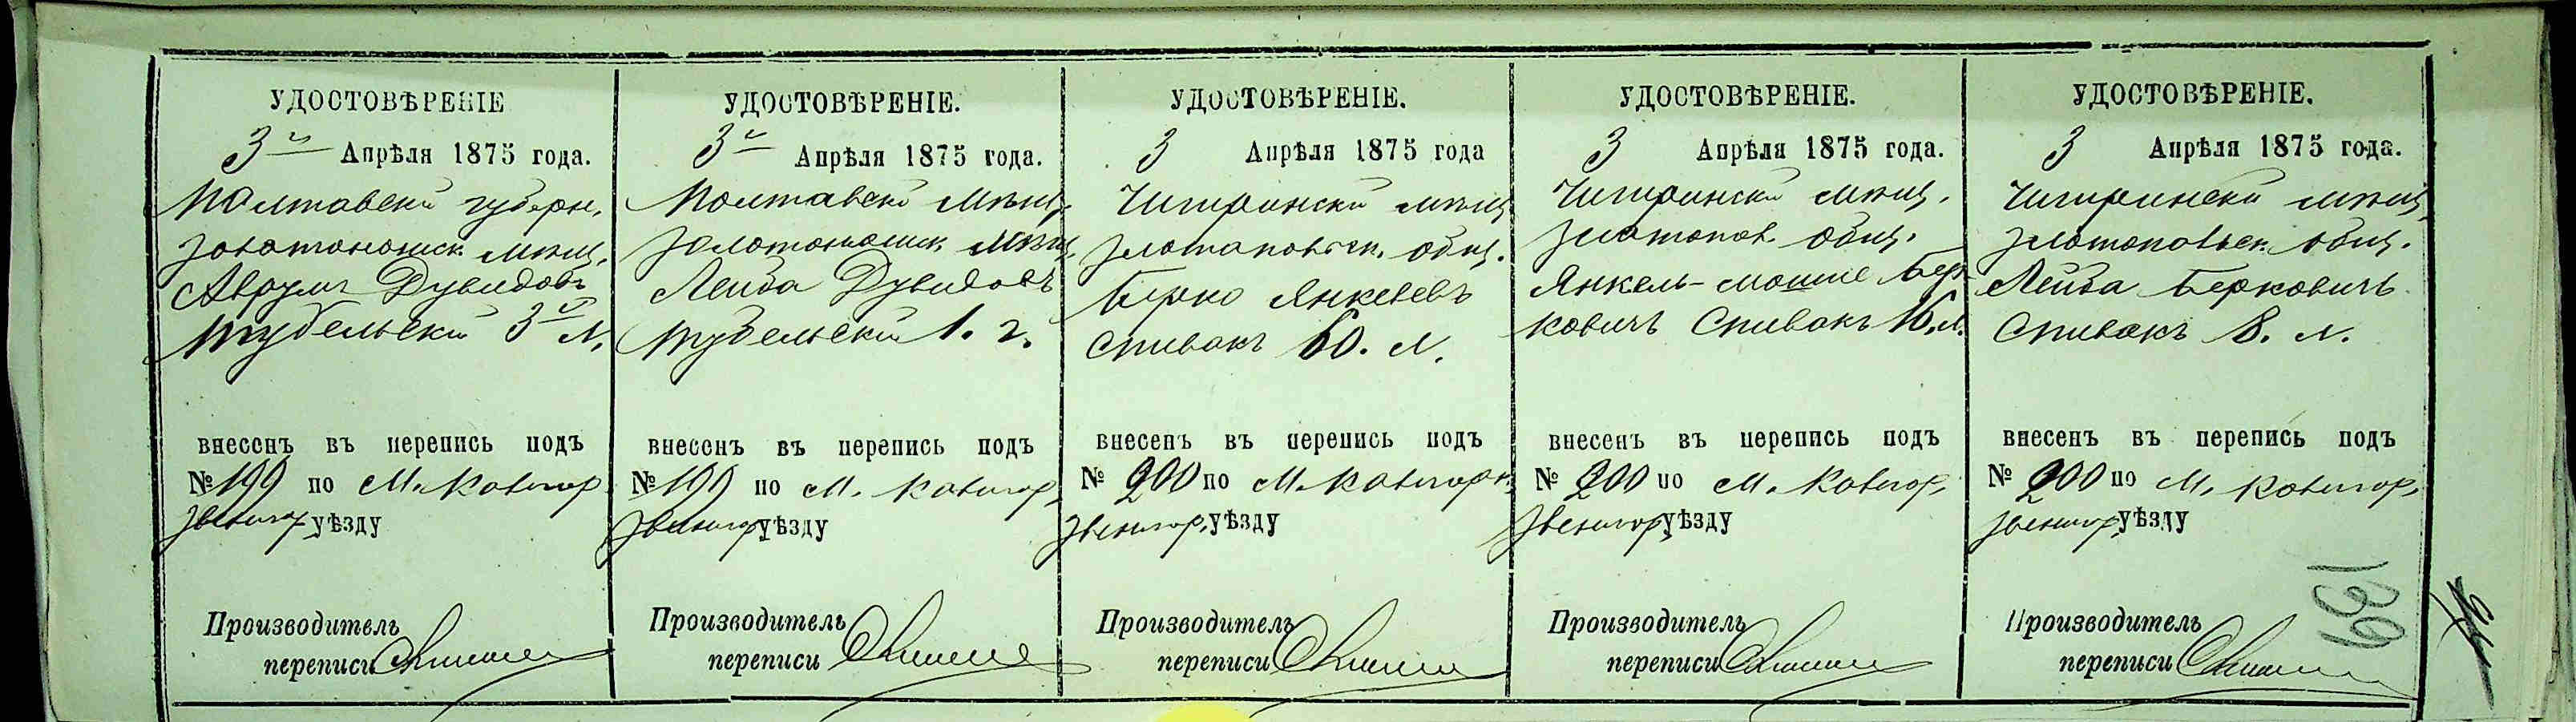 УДОСТОВѢРЕНІЕ
3го Апрѣля 1875 года.
Полтавской губерн.
Золотоношск. мѣщ.
Аврумъ Дувидовъ
Трубельскій 3й л.
внесенъ въ перепись подъ
№ 199 по М. Ковгор
Звенигор. уѣзду
Производитель
переписи
УДОСТОВѢРЕНІЕ.
3го Апрѣля 1875 года.
Полтавской мѣщ.
Золотоношск. мѣщ.
Лейба Дувидовъ
Трубельскій 1. г.
внесенъ въ перепись подъ
№ 199 по М. Ковгор.
Звенигор. уѣзду
Производитель
переписи
УДОСТОВѢРЕНІЕ.
3 Апрѣля 1875 года
Чигиринскій мѣщ
Златопольск. общ.
Берко Янкелевъ
Спивакъ 60. л.
внесенъ въ перепись подъ
№ 200 по М. Ковгор.
Звенигор. уѣзду
Производитель
переписи
УДОСТОВѢРЕНІЕ.
3 Апрѣля 1875 года.
Чигиринскій мѣщ.
Златопол. общ.
Янкель-Мошке Бер-
ковичъ Спивакъ 16. л.
внесенъ въ перепись подъ
№ 200 по М. Ковгор.
Звенигор. уѣзду
Производитель
переписи
УДОСТОВѢРЕНІЕ.
3 Апрѣля 1875 года.
Чигиринскій мѣщ.
Златопольск. общ.
Лейба Берковичъ
Спивакъ 8. л.
внесенъ въ перепись подъ
№ 200 по М. Ковгор.
Звенигор. уѣзду
Производитель
переписи
139